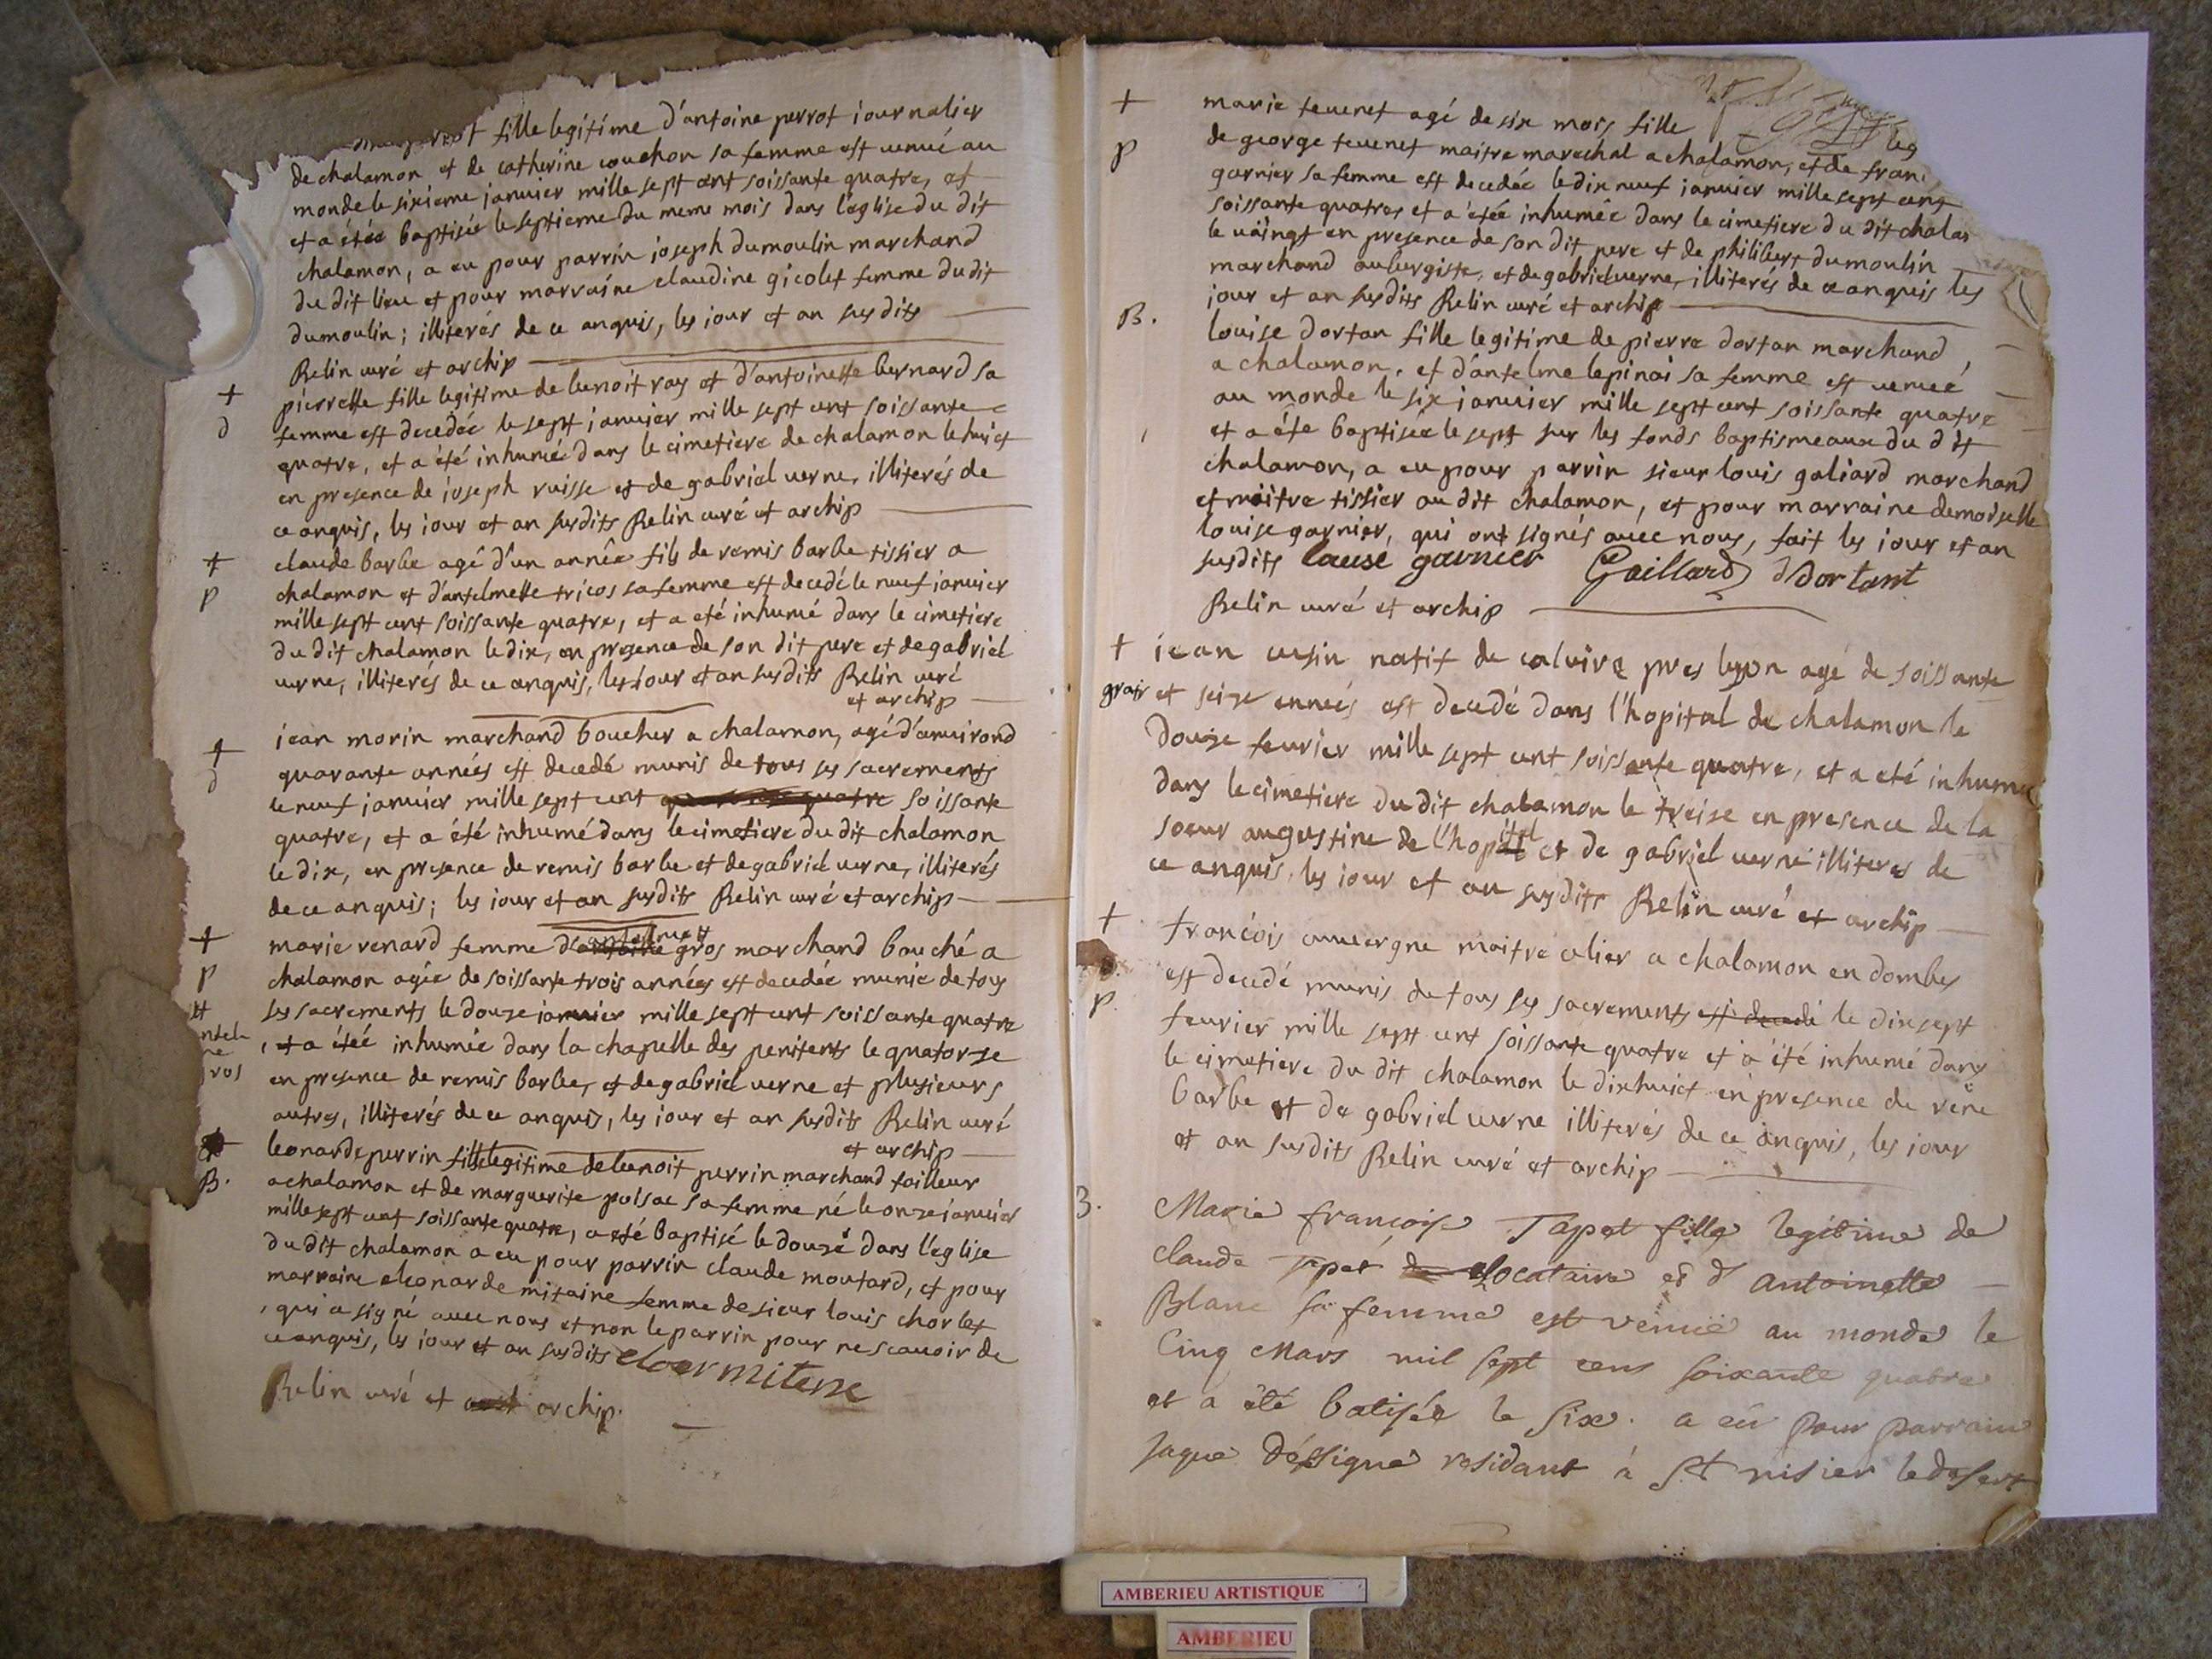 fille legitime d'antoine perrot iournalier
de chalamon et de catherine couchon sa femme est venuë au
monde le sixieme januier mille sept cent soissante quatre, et
et a étée baptisée le septieme du meme mois dans l'eglise du dit
chalamon, a eu pour parrin joseph dumoulin marchand
du dit lieu et pour marraine claudine gicolet femme du dit
dumoulin; illiterés de ce anquis, les iour et an susdits
Relin curé et archip
+ pierrette fille legitime de benoit ray et d'antoinette bernard sa
d femme est decedée le sept januier mille sept cent soissante
quatre, et a été inhumée dans le cimetiere de chalamon le huict
en presence de joseph ruisse et de gabriel uerne, illiterés de
ce anquis, les iour et an susdits Relin curé et archip
+ claude barbe agé d'un année fils de remis barbe tissier a
p chalamon et d'antelmette tricos sa femme est decedé le neuf januier
mille sept cent soissante quatre, et a eté inhumé dans le cimetiere
du dit chalamon le dix, en presence de son dit pere et de gabriel
uerne, illiterés de ce anquis, les iour et an susdits Relin curé
et archip
iean morin marchand boucher a chalamon, agé d'enuirond
+ quarante années est decedé munis de tous ses sacrements
d le neuf januier mille sept cent soissante
quatre, et a été inhumé dans le cimetiere du dit chalamon
le dix, en presence de remis barbe et de gabriel uerne, illiterés
de ce anquis; les iour et an susdits Relin curé et archip
+ marie renard femme gros marchand bouché a
p chalamon agée de soissante trois années est decedée munie de tous
ses sacrements le douze januier mille sept cent soissante quatre
, et a étéé inhumée dans la chapelle des penitents le quatorze
ros en presence de remis barbe, et de gabriel uerne et plusieurs
autres, illiterés de ce anquis, les iour et an susdits Relin curé
et archip
leonarde perrin fille legitime de benoit perrin marchand tailleur
B. a chalamon et de marguerite poisac sa femme né le onze januier
mille sept cent soissante quatre, a été baptisé le douze dans l'eglise
du dit chalamon a eu pour parrin claude moutard, et pour
marraine eleonarde mitaine femme de sieur louis chorlet
, qui a signé auec nous et non le parrin pour ne scauoir de
ce anquis, les iour et an susdits
Relin curé et archip.
+ marie teuenet agé de six mois fille leg
p de george teuenet maitre marechal a chalamon, et de fran
garnier sa femme est decedée le dix neuf januier mille sept cent
soissante quatres et a étée inhumée dans le cimetiere du dit chalam
le uäingt en presence de son dit pere et de philibert dumoulin
marchand aubergiste, et de gabriel uerne, illiterés de ce anquis les
jour et an susdits Relin curé et archip
B. louise dortan fille legitime de pierre dortan marchand
a chalamon, et d'antelme lepinai sa femme est uenuë
au monde le six januier mille sept cent soissante quatre
et a été baptisée le sept sur les fonds baptismeaux du dit
chalamon, a eu pour parrin sieur louis galiard marchand
et maitre tissier au dit chalamon, et pour marraine demoiselle
louise garnier, qui ont signés auec nous, fait les jour et an
susdits lauise garnier Gaillard dDortant
Relin curé et archip
+ iean cusin natif de caluire pres lyon agé de soissante
gratis et seize années est decedé dans l'hopital de chalamon le
douze feurier mille sept cent soissante quatre, et a eté inhumé
dans le cimetiere du dit chalamon le treise en presence de la
soeur augustine de l'hopital et de gabriel uerne illiteres de
ce anquis, les iour et an susdits Relin curé et archip
+ francois auuergne maitre celier a chalamon en dombes
est decedé munis de tous ses sacrements est decedé le dixsept
p. feurier mille sept cent soissante quatre et a été inhumé dans
le cimetiere du dit chalamon le dixhuict en presence de rene
barbe et de gabriel uerne illiterés de ce anquis, les jour
et an susdits Relin curé et archip
B. Marie françoise Tapet fille legitime de
Claude Tapet de locataire et d'antoinette
Blanc sa femme est venuë au monde le
Cinq Mars mil sept cens soixante quatre
et a été batisée le six. a eü pour parrain
Jaque Déssigne residant à St nisier le desert
AMBERIEU ARTISTIQUE
AMBERIEU